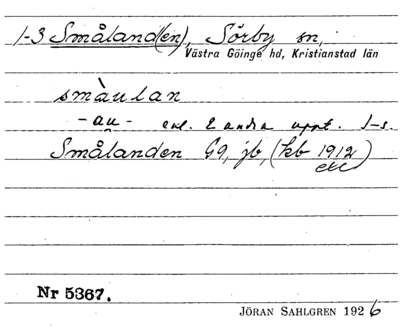 1-3 Småland(en), Sörby sn,
Västra Göinge hd, Kristianstad län
smàulan
-au- enl. 2 andra uppt. 1-s.
Smålanden G9, jb, (kb 1912
etc)
Nr 5367.
JÖRAN SAHLGREN 1926